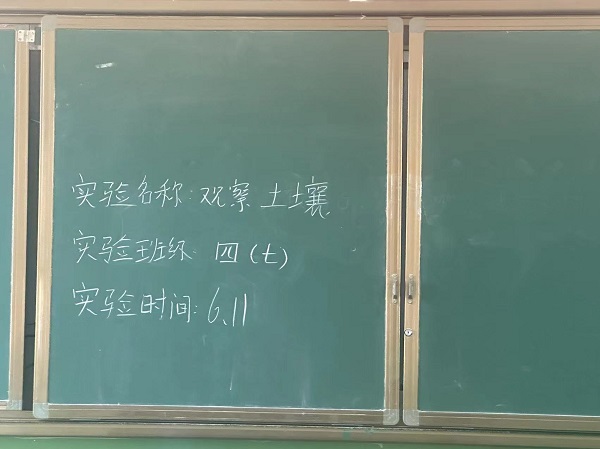 实验名称:观察土壤
实验班级:四(七)
实验时间:6.11